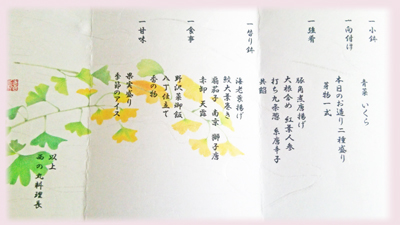 一 小鉢
青菜 いくら
一 向付け
本日のお造り 二種盛り
芽物一式
一 強肴
豚角煮唐揚げ
大根含め 紅葉人参
打ち九条葱 糸唐辛子
共餡
一 替り鉢
海老蓑揚げ
鮫大葉巻き
翡茄子 南京 獅子唐
赤卸 天露
一 食事
野沢菜御飯
八丁仕立て
香の物
一 甘味
果実盛り
季節のアイス
以上
西の丸料理長